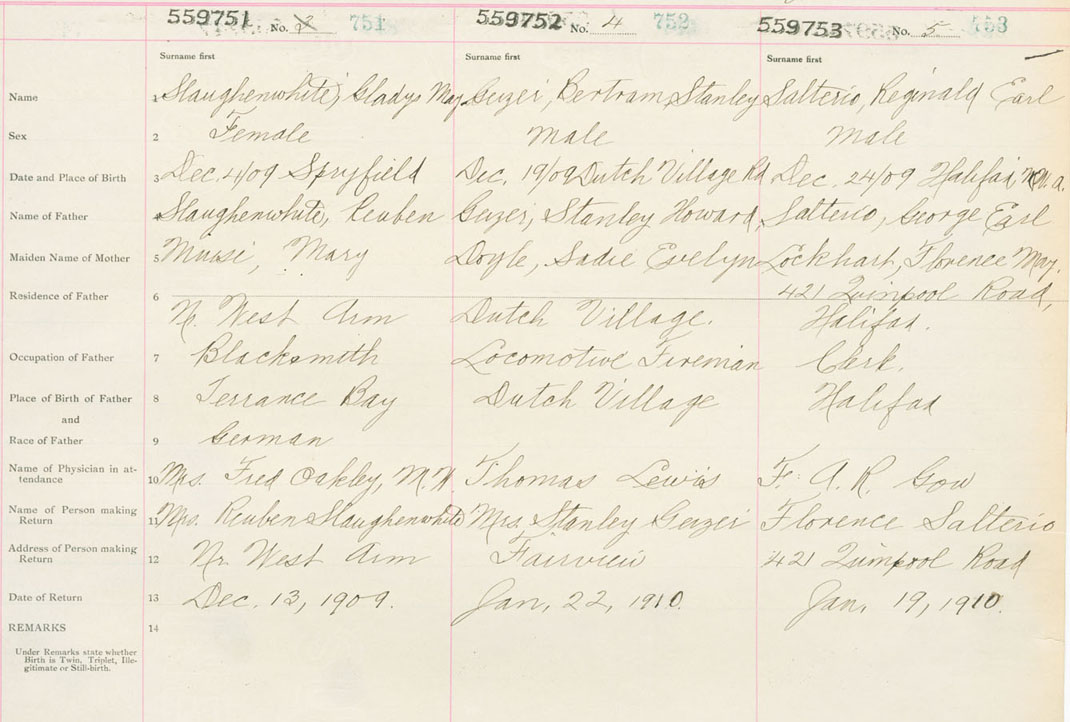 559751 No. 751 559752 No. 4 752 559753 No. 5 753
Surname first Surname first Surname first
Name 1 Slaughenwhite, Gladys May Geizer, Bertram Stanley Salterio, Reginald Earl
Sex 2 Female Male Male
Date and Place of Birth 3 Dec. 4/09 Spryfield Dec. 19/09 Dutch Village Rd Dec. 24/09 Halifax
Name of Father 4 Slaughenwhite, Reuben Geizer, Stanley Howard, Salterio, George Earl
Maiden Name of Mother 5 Mary Doyle, Sadie Evelyn Lockhart, Florence May.
Residence of Father 6 421 Quinpool Road,
N. West Arm Dutch Village. Halifax.
Occupation of Father 7 Blacksmith Locomotive Fireman Clerk.
Place of Birth of Father 8 Terrance Bay Dutch Village Halifax
and
Race of Father 9 German
Name of Physician in at-
tendance 10 Mrs. Fred Oakley, Thomas Lewis F. A. R. Gow
Name of Person making
Return 11 Mrs. Reuben Slaughenwhite Mrs. Stanley Geizer Florence Salterio
Address of Person making
Return 12 Nr. West Arm Fairview 421 Quinpool Road
Date of Return 13 Dec. 13, 1909. Jan. 22, 1910. Jan. 19, 1910.
REMARKS 14
Under Remarks state whether
Birth is Twin, Triplet, Ille-
gitimate or Still-birth.